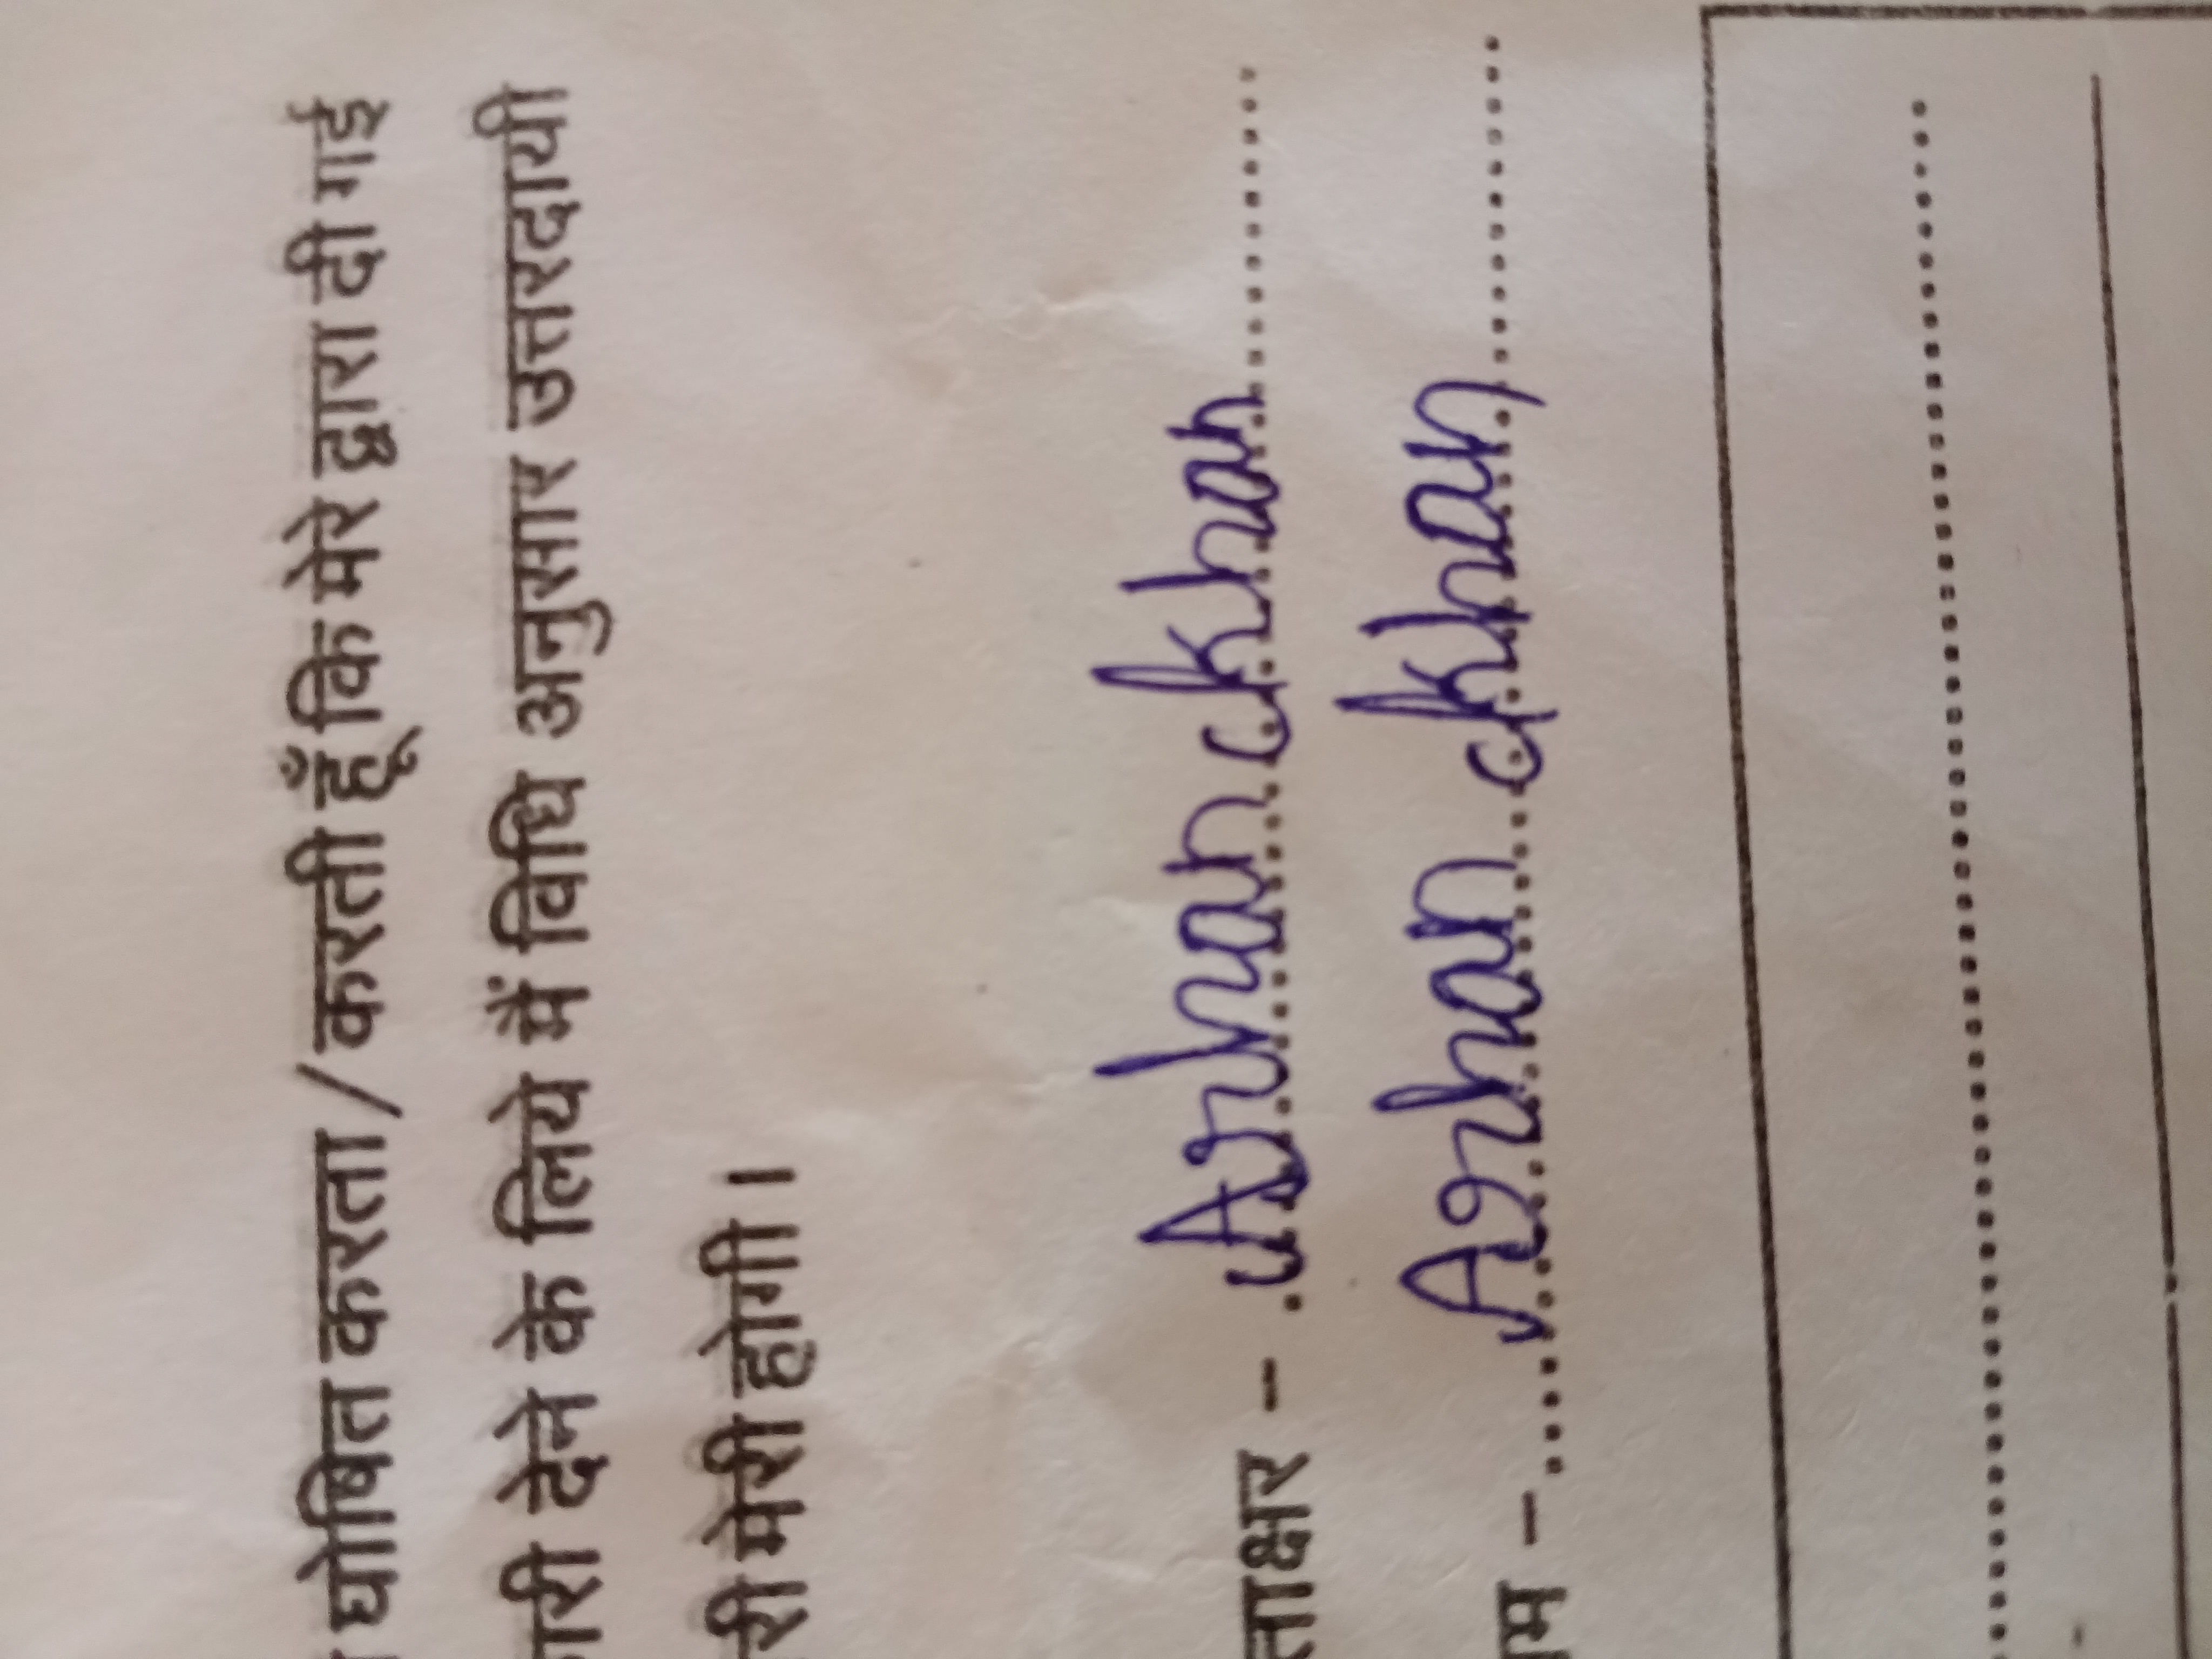 घोषित करता / करती हूँ कि मेरे द्वारा दी गई
देने के लिये में विधि अनुसार उत्तरदायी
मेरी होगी।
- Arhan Khan
- Arhan Khan